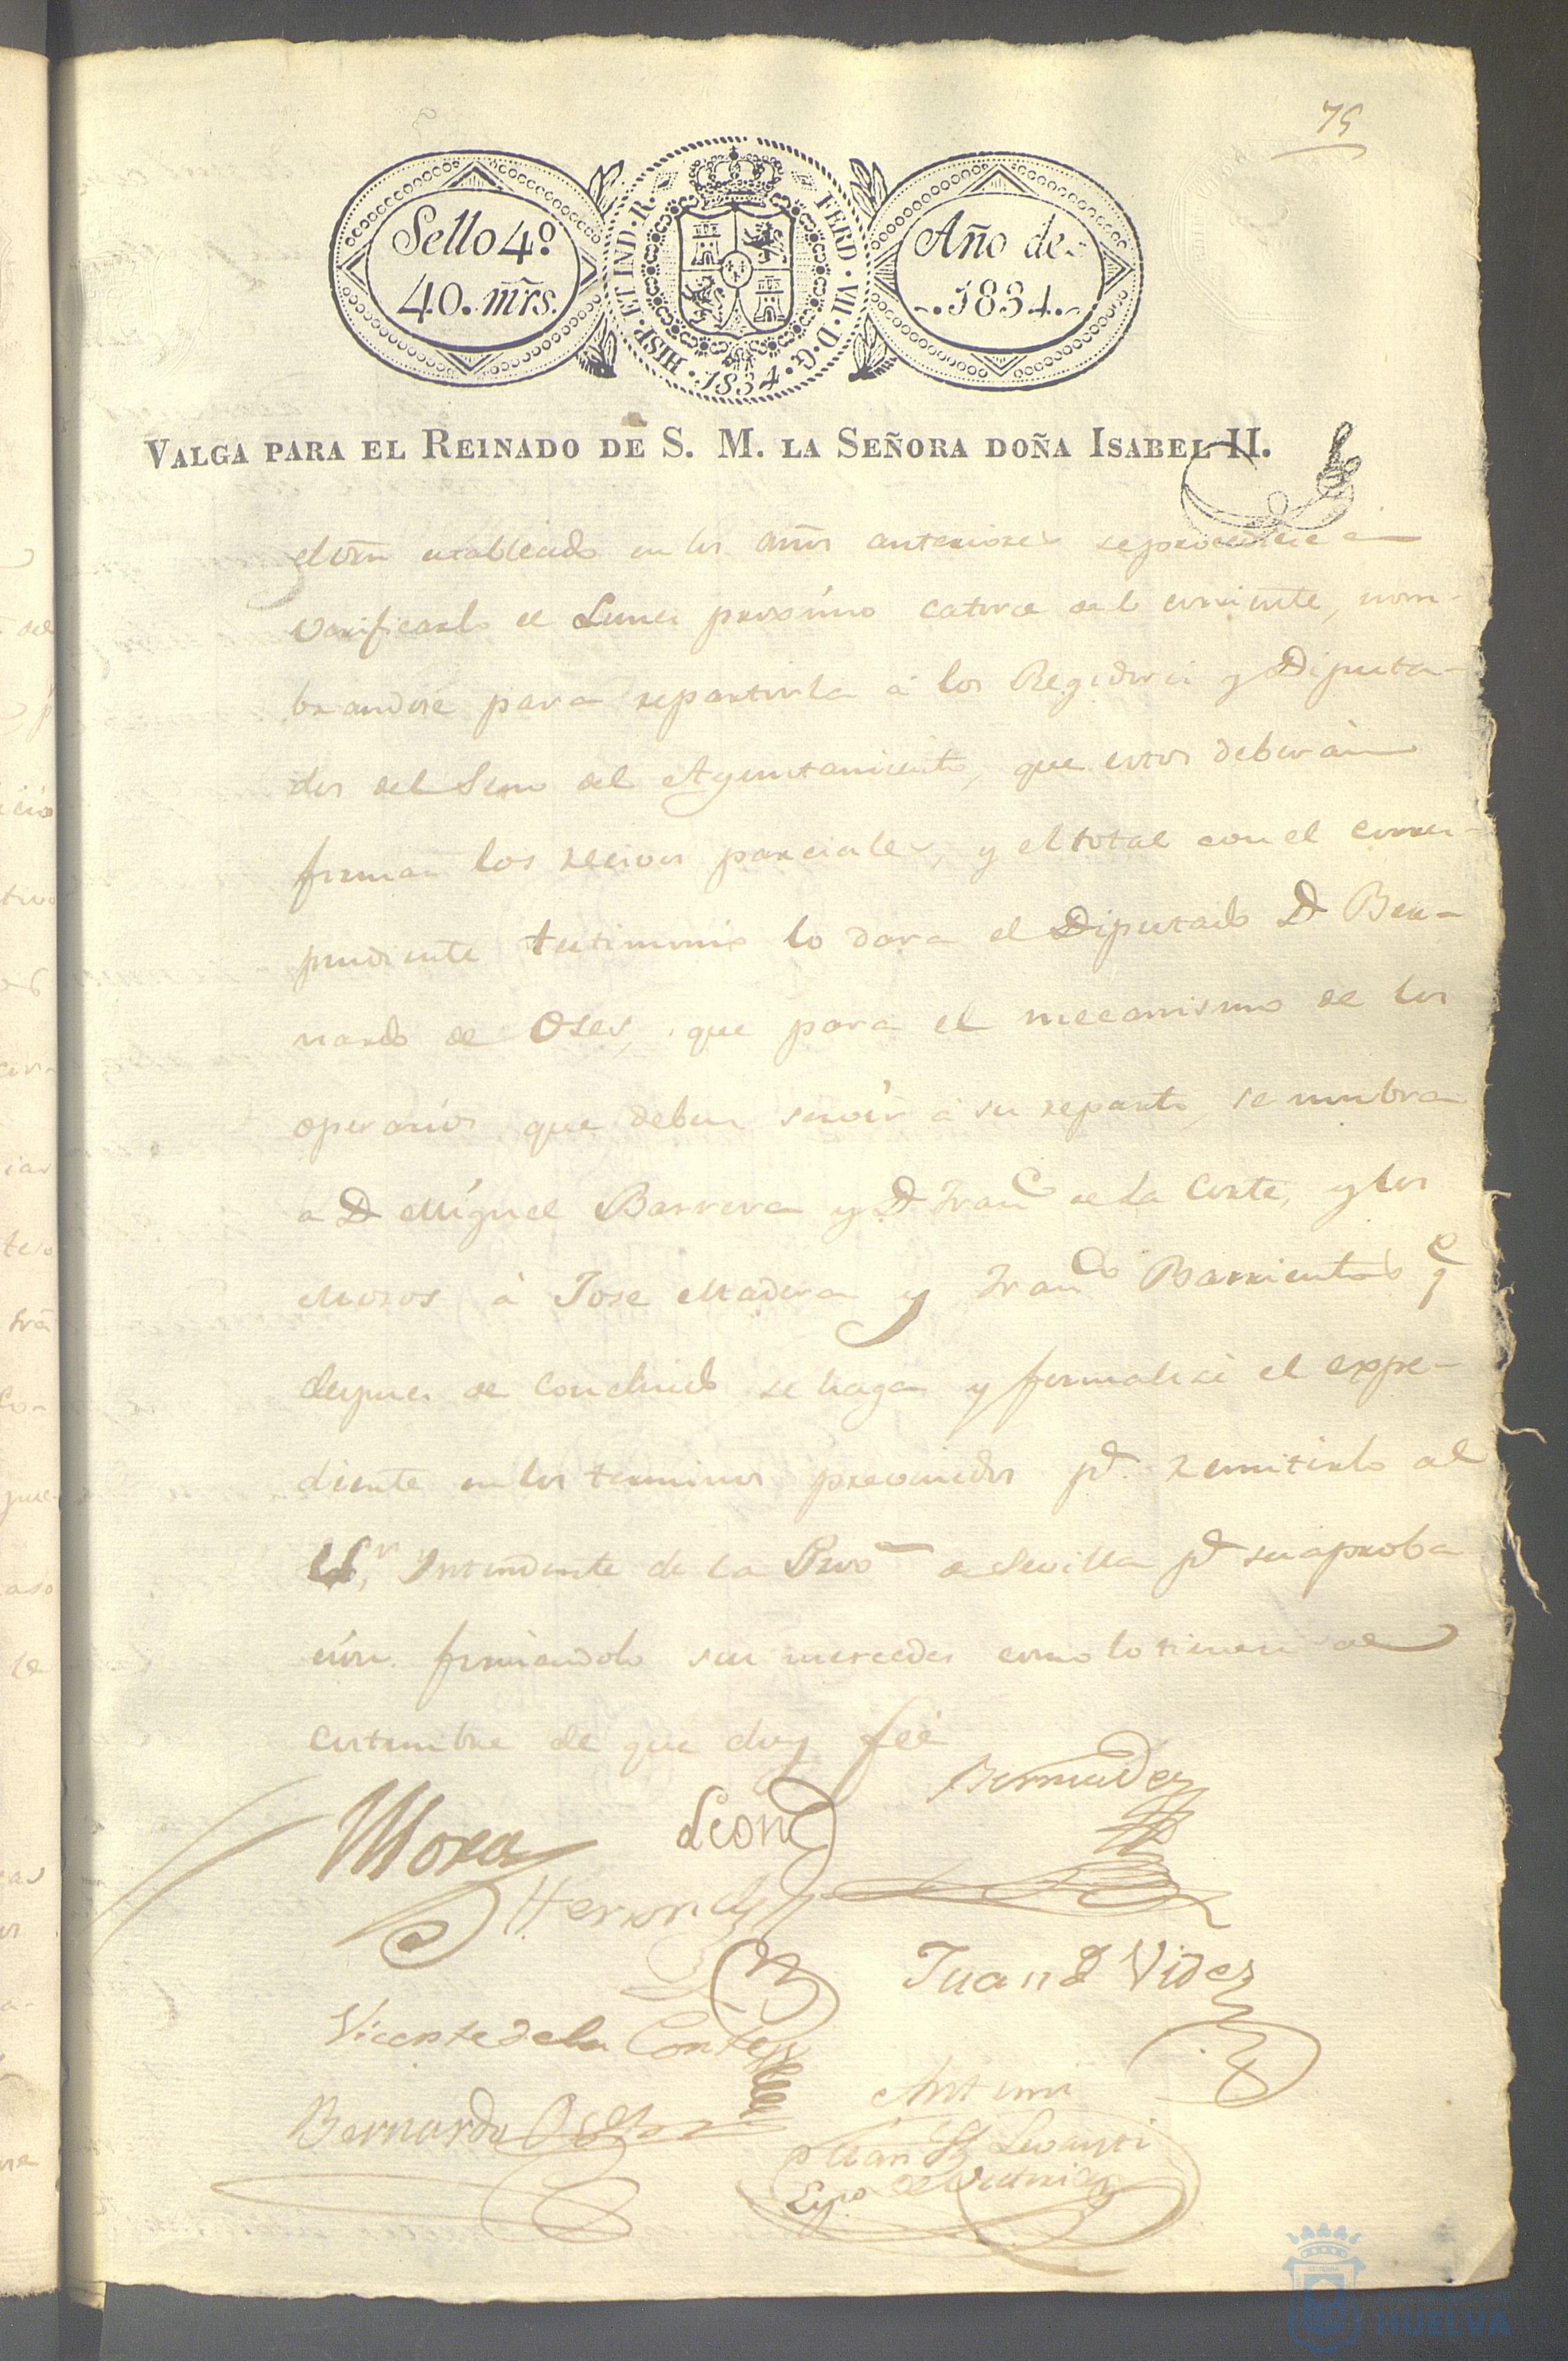 75
Sello 4º
40. mrs.
HISP. ET IND. R. FERD. VII. D. G. 1834.
Año de
1834.
VALGA PARA EL REINADO DE S. M. LA SEÑORA DOÑA ISABEL II.
el orn establecido en los años anteriores se procediese á
verificarlo el Lunes proximo catorce del corriente, nom-
brandose para repartirla á los Regidores y Diputa-
dos del Seno del Ayuntamiento, que estos deberán
firmar los recivos parciales, y el total con el corres-
pondiente testimonio lo dara el Diputado D. Ber-
nardo de Oses, que para el mecanismo de los
operarios que deben servir á su reparto, se nombra
a D. Miguel Barrera y D. Franco de la Corte, y los
Mozos á Jose Madera y Franco Barrientos q
despues de concluido se haga y formalice el expe-
diente en los terminos prevenidos pa. remitirlo al
Sr. Yntendente de la Prova de Sevilla pa su aproba
cion. firmandolo sus mercedes como lo tienen de
costumbre de que doy feé
Mora León Bermudez
Hernandz
Juan d Vides
Vicente de la Corte
Bernardo Oses
Ante mi
de Victoria
Esno
HUELVA